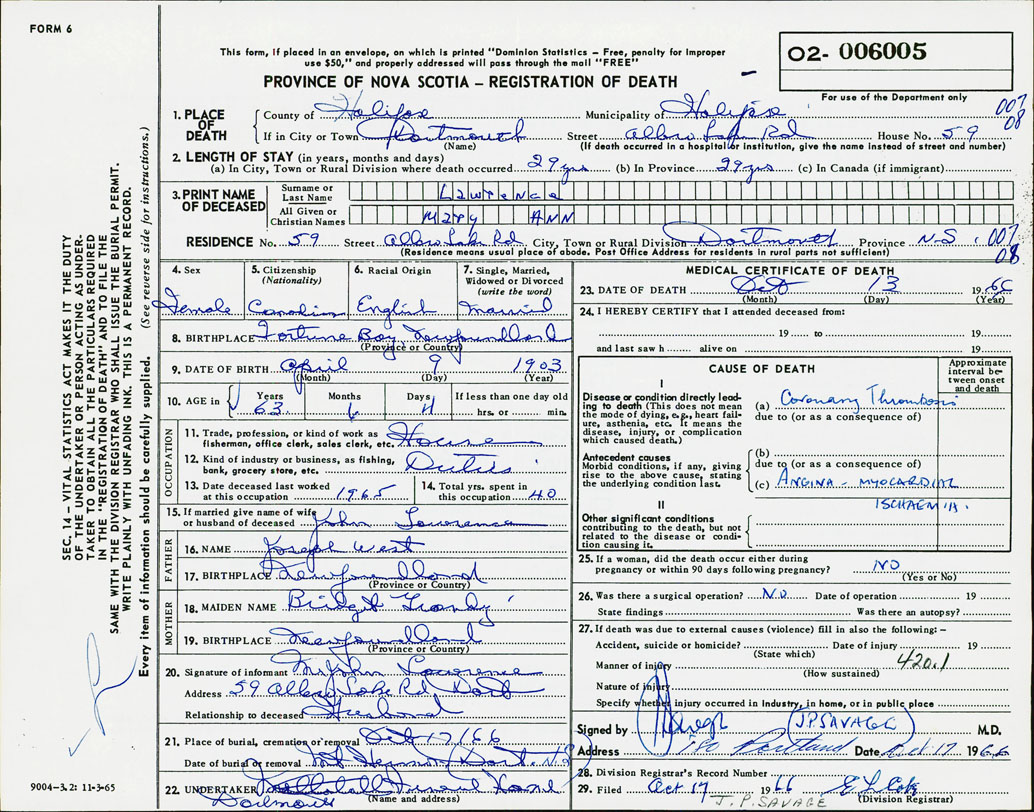 FORM 6
This form, if placed in an envelope, on which is printed "Dominion Statistics – Free, penalty for improper
use $50," and properly addressed will pass through the mail "FREE"
PROVINCE OF NOVA SCOTIA – REGISTRATION OF DEATH
02- 006005
For use of the Department only
1. PLACE OF DEATH
County of Halifax Municipality of Halifax 007
08
If in City or Town Dartmouth Street Albro Lake Rd House No. 59
(Name) (If death occurred in a hospital or institution, give the name instead of street and number)
2. LENGTH OF STAY (in years, months and days)
(a) In City, Town or Rural Division where death occurred 29 yrs (b) In Province 29 yrs (c) In Canada (if immigrant)
3. PRINT NAME OF DECEASED
Surname or Last Name Lawrence
All Given or Christian Names Mary Ann
RESIDENCE No. 59 Street Albro Lake Rd City, Town or Rural Division Dartmouth Province N-S. 007
08
(Residence means usual place of abode. Post Office Address for residents in rural parts not sufficient)
4. Sex
Female
5. Citizenship
(Nationality)
Canadian
6. Racial Origin
English
7. Single, Married,
Widowed or Divorced
(write the word)
Married
8. BIRTHPLACE Fortune Bay Newfoundland
(Province or Country)
9. DATE OF BIRTH April 9 1903
(Month) (Day) (Year)
10. AGE in Years Months Days If less than one day old
63 6 4 hrs. or min.
OCCUPATION
11. Trade, profession, or kind of work as
fisherman, office clerk, sales clerk, etc. House
12. Kind of industry or business, as fishing,
bank, grocery store, etc. Duties
13. Date deceased last worked
at this occupation 1965
14. Total yrs. spent in
this occupation 40
15. If married give name of wife
or husband of deceased John Lawrence
FATHER
16. NAME Joseph West
17. BIRTHPLACE Newfoundland
(Province or Country)
MOTHER
18. MAIDEN NAME Bridget
19. BIRTHPLACE Newfoundland
(Province or Country)
20. Signature of informant Mr John Lawrence
Address 59 Albro Lake Rd Dart
Relationship to deceased Husband
21. Place of burial, cremation or removal Oct 17/66
Date of burial or removal Dart. N.S
22. UNDERTAKER Funeral Home
Dartmouth (Name and address)
MEDICAL CERTIFICATE OF DEATH
23. DATE OF DEATH Oct 13 1966
(Month) (Day) (Year)
24. I HEREBY CERTIFY that I attended deceased from:
19 to 19
and last saw h alive on 19
CAUSE OF DEATH
Approximate interval between onset and death
I
Disease or condition directly leading to death (This does not mean the mode of dying, e.g., heart failure, asthenia, etc. It means the disease, injury, or complication which caused death.)
(a) Coronary Thrombosis
due to (or as a consequence of)
Antecedent causes
Morbid conditions, if any, giving rise to the above cause, stating the underlying condition last.
(b)
due to (or as a consequence of)
(c) ANGINA - MYOCARDIAL
ISCHAEMIA.
II
Other significant conditions
contributing to the death, but not related to the disease or condition causing it.
25. If a woman, did the death occur either during
pregnancy or within 90 days following pregnancy? NO
(Yes or No)
26. Was there a surgical operation? NO Date of operation 19
State findings Was there an autopsy?
27. If death was due to external causes (violence) fill in also the following: –
Accident, suicide or homicide? Date of injury 19
(State which)
Manner of injury 420.1
(How sustained)
Nature of injury
Specify whether injury occurred in Industry, in home, or in public place
Signed by (J.P. SAVAGE) M.D.
Address Portland Date Oct. 17 1966
28. Division Registrar's Record Number
29. Filed Oct 17 1966
(Division Registrar)
J. P. SAVAGE
SEC. 14 – VITAL STATISTICS ACT MAKES IT THE DUTY
OF THE UNDERTAKER OR PERSON ACTING AS UNDER-
TAKER TO OBTAIN ALL THE PARTICULARS REQUIRED
IN THE "REGISTRATION OF DEATH" AND TO FILE THE
SAME WITH THE DIVISION REGISTRAR WHO SHALL ISSUE THE BURIAL PERMIT.
WRITE PLAINLY WITH UNFADING INK. THIS IS A PERMANENT RECORD.
Every item of information should be carefully supplied. (See reverse side for instructions.)
9004–3.2: 11-3-65